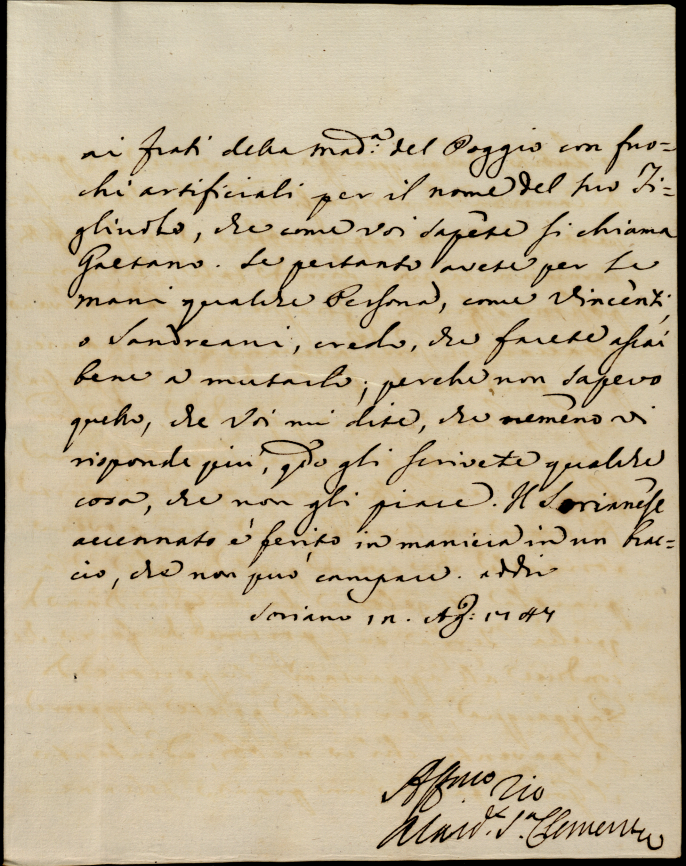 ai frati della Mad.ª del Poggio con fuo=
chi artificiali per il nome del suo Fi=
gliuolo, che come voi sapete si chiama
Gaetano. Se pertanto avete per le
mani qualche Persona, come Vincenzi,
o Sandreani, credo, che farete assai
bene a mutarlo; perche non sapevo
quello, che voi mi dite, che nemeno vi
risponde più, qdo gli scrivete qualche
cosa, che non gli piace. Il Sorianese
accennato è ferito in maniera in un brac=
cio, che non può campare. addio
Soriano Ag: 1747
Affmo Zio